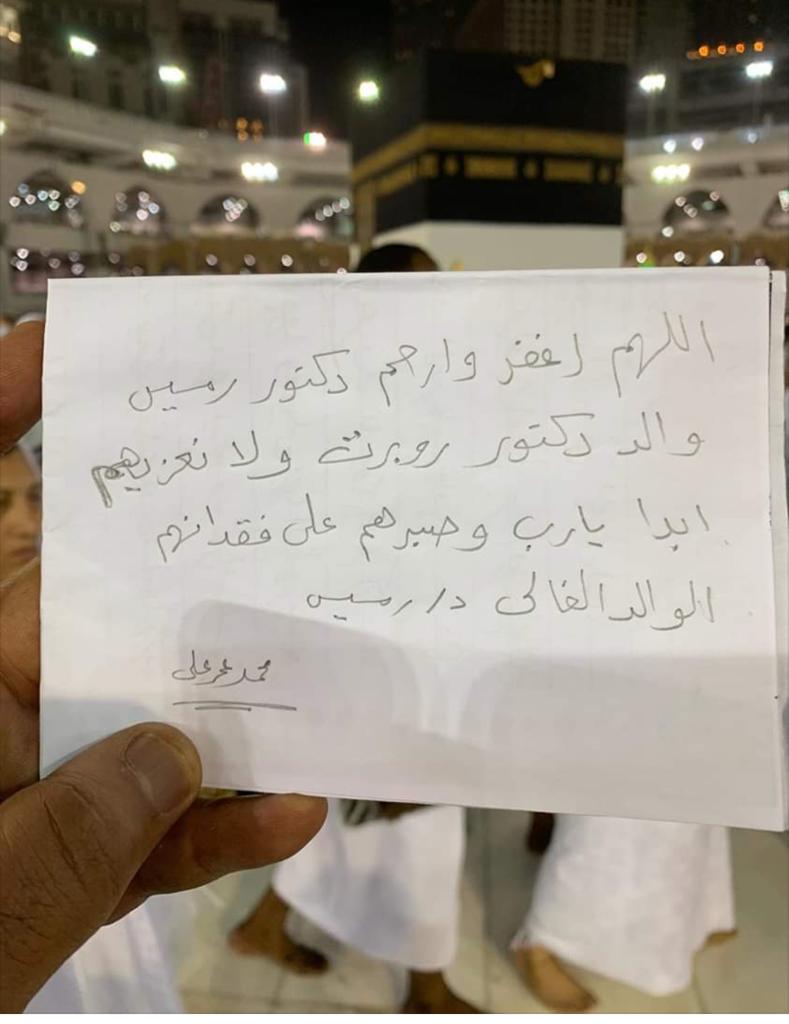 اللهم اغفر وارحم دكتور رمسيس
والد دكتور روبرت ولا تعزيهم
ابدا يارب وصبرهم على فقدانهم
الوالد الغالى د/ رمسيس
محمد عمر على